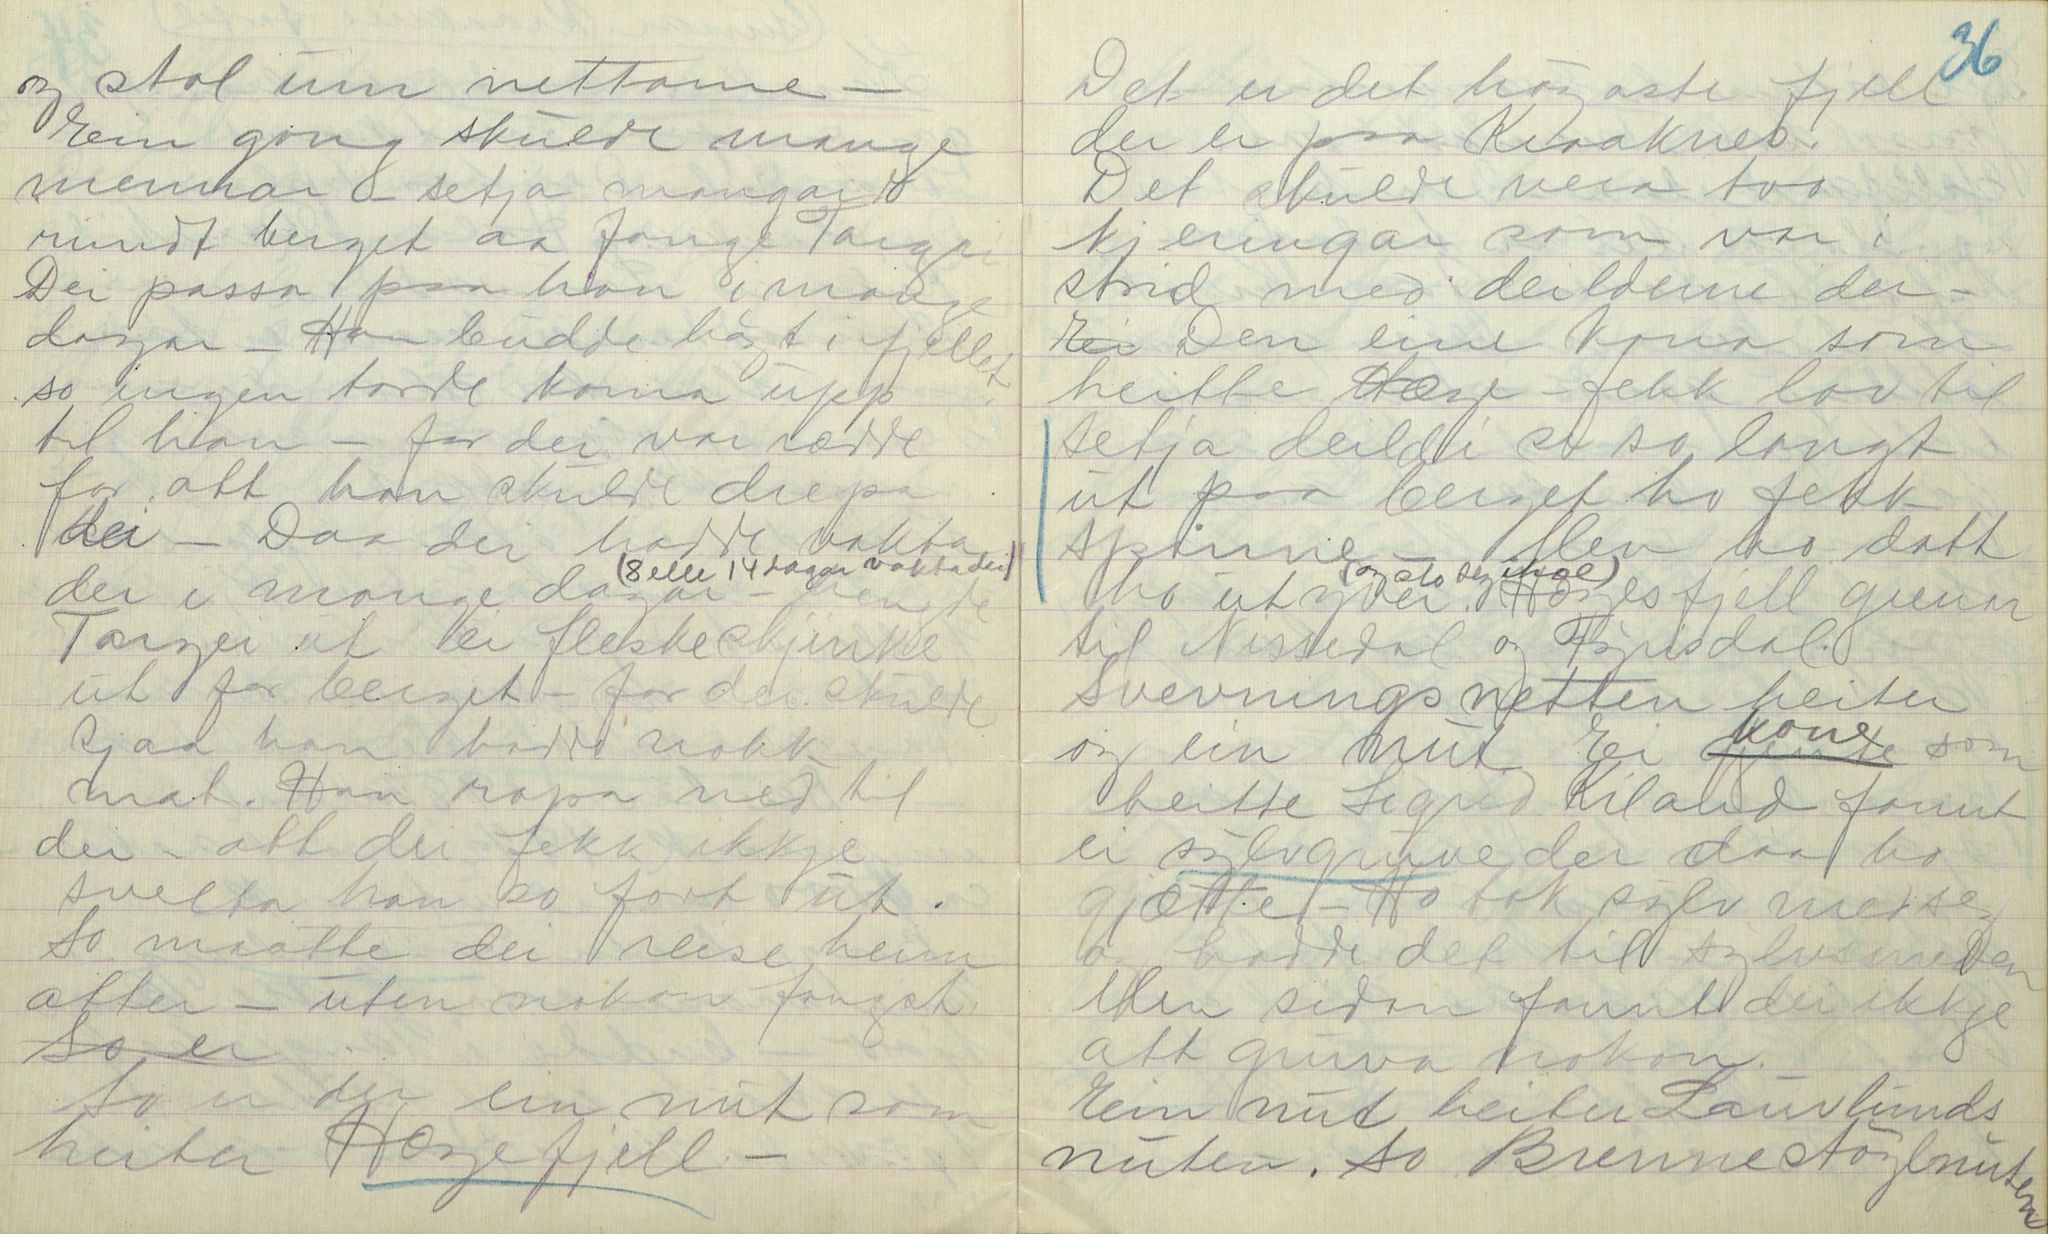 og stal um nettarne –
Ein gong skulde mange
mennar – setja mangard
rundt berget aa fange Targei
Dei passa paa han i mange
dagar – Han budde høgt i fjellet
so ingen torde koma upp
til han – for dei var rædde
for att han skulde drepa
dei – Daa dei hadde vakta
(8 elle 14 dagar vakta dei)
der i mange dagar – slengde
Targei ut ei fleskeskjinke
ut for berget – for dei skulde
sjaa han hadde nokk
mat. Han ropa ned til
dei – att dei fekk ikkje
svelta han so fort ut.
So maatte dei reise heim
atter – uten nokon fangst.
So er
So er der ein nut som
heiter Høgefjell –
36
Det er det høgaste fjell
der er paa Kraaknes.
Det skulde vera tvo
kjeringar som var i
strid med deilderne der –
Ei Den eine kona som
heitte Hæge – fekk lov til
setja deild i so langt
ut paa berget ho fekk
spinne – Men ho datt
(og slo seg ihæl)
ho utyver. Hægesfjell grenar
til Nissedal og Fyrisdal.
Svevningsnetten heiter
og ein nut. Ei kone som
heitte Sigrid Kiland fannt
ei sylvgruve der daa ho
gjætte – Ho tok sylv med seg
og hadde det til sylvsmeden
Men sidan fannt dei ikkje
att gruva nokon.
Ein nut heiter Lauvlunds
nuten. So Brennestøylnuten